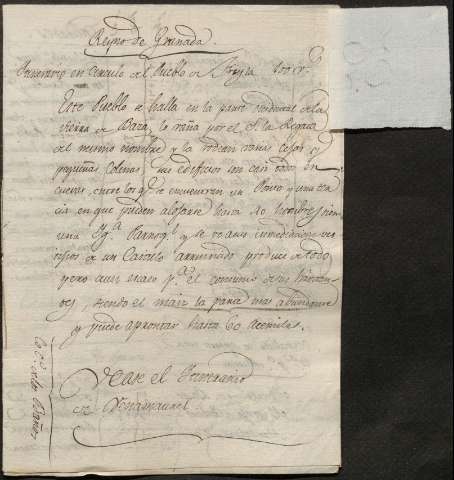 Reyno de Granada.
Itinerario en circulo del Pueblo de Freyla
Este Pueblo se halla en la parte occidental de la
Sierra de Baza, lo baña por el S. la Rambla
del mismo nombre y la rodean varias lomas y
pequeñas Colinas sus edificios son casi todos en
cuevas, entre los q.e se encuentren un Poso y una
en que pueden alojarse hasta 40 hombres, tiene
una Yg.a Parroq.l y se ve a sus inmediaciones
de un Castillo arruinado produce de todo
pero aun escaso p.a el consumo de sus havitan
tes, siendo el maiz la parte mas abundante
y puede aprontar hasta 60 acemilas.
Vease el Itinerario
de Venamaurel